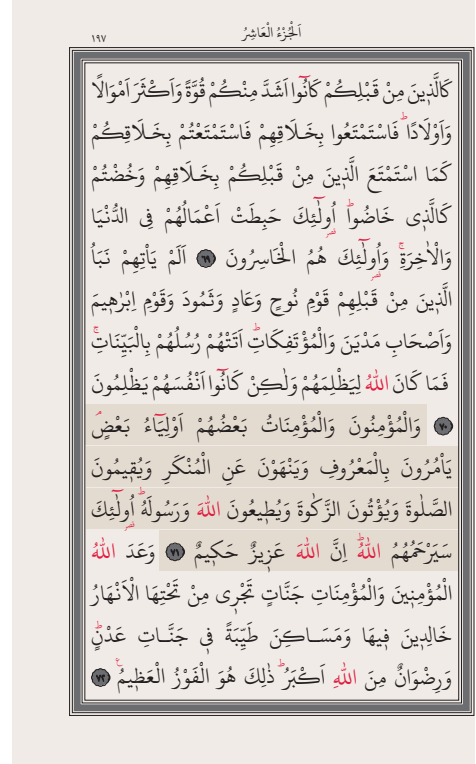 اَلْجُزْءُ الْعَاشِرُ
١٩٧
كَالَّذ۪ينَ مِنْ قَبْلِكُمْ كَانُٓوا اَشَدَّ مِنْكُمْ قُوَّةً وَاَكْثَرَ اَمْوَالًا
وَاَوْلَادًاۜ فَاسْتَمْتَعُوا بِخَلَاقِهِمْ فَاسْتَمْتَعْتُمْ بِخَلَاقِكُمْ
كَمَا اسْتَمْتَعَ الَّذ۪ينَ مِنْ قَبْلِكُمْ بِخَلَاقِهِمْ وَخُضْتُمْ
كَالَّذ۪ي خَاضُواۜ اُو۬لٰٓئِكَ حَبِطَتْ اَعْمَالُهُمْ فِي الدُّنْيَا
وَالْاٰخِرَةِۚ وَاُو۬لٰٓئِكَ هُمُ الْخَاسِرُونَ ﴿٦٩﴾ اَلَمْ يَأْتِهِمْ نَبَاُ
الَّذ۪ينَ مِنْ قَبْلِهِمْ قَوْمِ نُوحٍ وَعَادٍ وَثَمُودَ وَقَوْمِ اِبْرٰه۪يمَ
وَاَصْحَابِ مَدْيَنَ وَالْمُؤْتَفِكَاتِۜ اَتَتْهُمْ رُسُلُهُمْ بِالْبَيِّنَاتِۚ
فَمَا كَانَ اللّٰهُ لِيَظْلِمَهُمْ وَلٰكِنْ كَانُٓوا اَنْفُسَهُمْ يَظْلِمُونَ
﴿٧٠﴾ وَالْمُؤْمِنُونَ وَالْمُؤْمِنَاتُ بَعْضُهُمْ اَوْلِيَٓاءُ بَعْضٍۘ
يَأْمُرُونَ بِالْمَعْرُوفِ وَيَنْهَوْنَ عَنِ الْمُنْكَرِ وَيُق۪يمُونَ
الصَّلٰوةَ وَيُؤْتُونَ الزَّكٰوةَ وَيُط۪يعُونَ اللّٰهَ وَرَسُولَهُۜ اُو۬لٰٓئِكَ
سَيَرْحَمُهُمُ اللّٰهُۜ اِنَّ اللّٰهَ عَز۪يزٌ حَك۪يمٌ ﴿٧١﴾ وَعَدَ اللّٰهُ
الْمُؤْمِن۪ينَ وَالْمُؤْمِنَاتِ جَنَّاتٍ تَجْر۪ي مِنْ تَحْتِهَا الْاَنْهَارُ
خَالِد۪ينَ ف۪يهَا وَمَسَاكِنَ طَيِّبَةً ف۪ي جَنَّاتِ عَدْنٍۜ
وَرِضْوَانٌ مِنَ اللّٰهِ اَكْبَرُۜ ذٰلِكَ هُوَ الْفَوْزُ الْعَظ۪يمُ۟ ﴿٧٢﴾